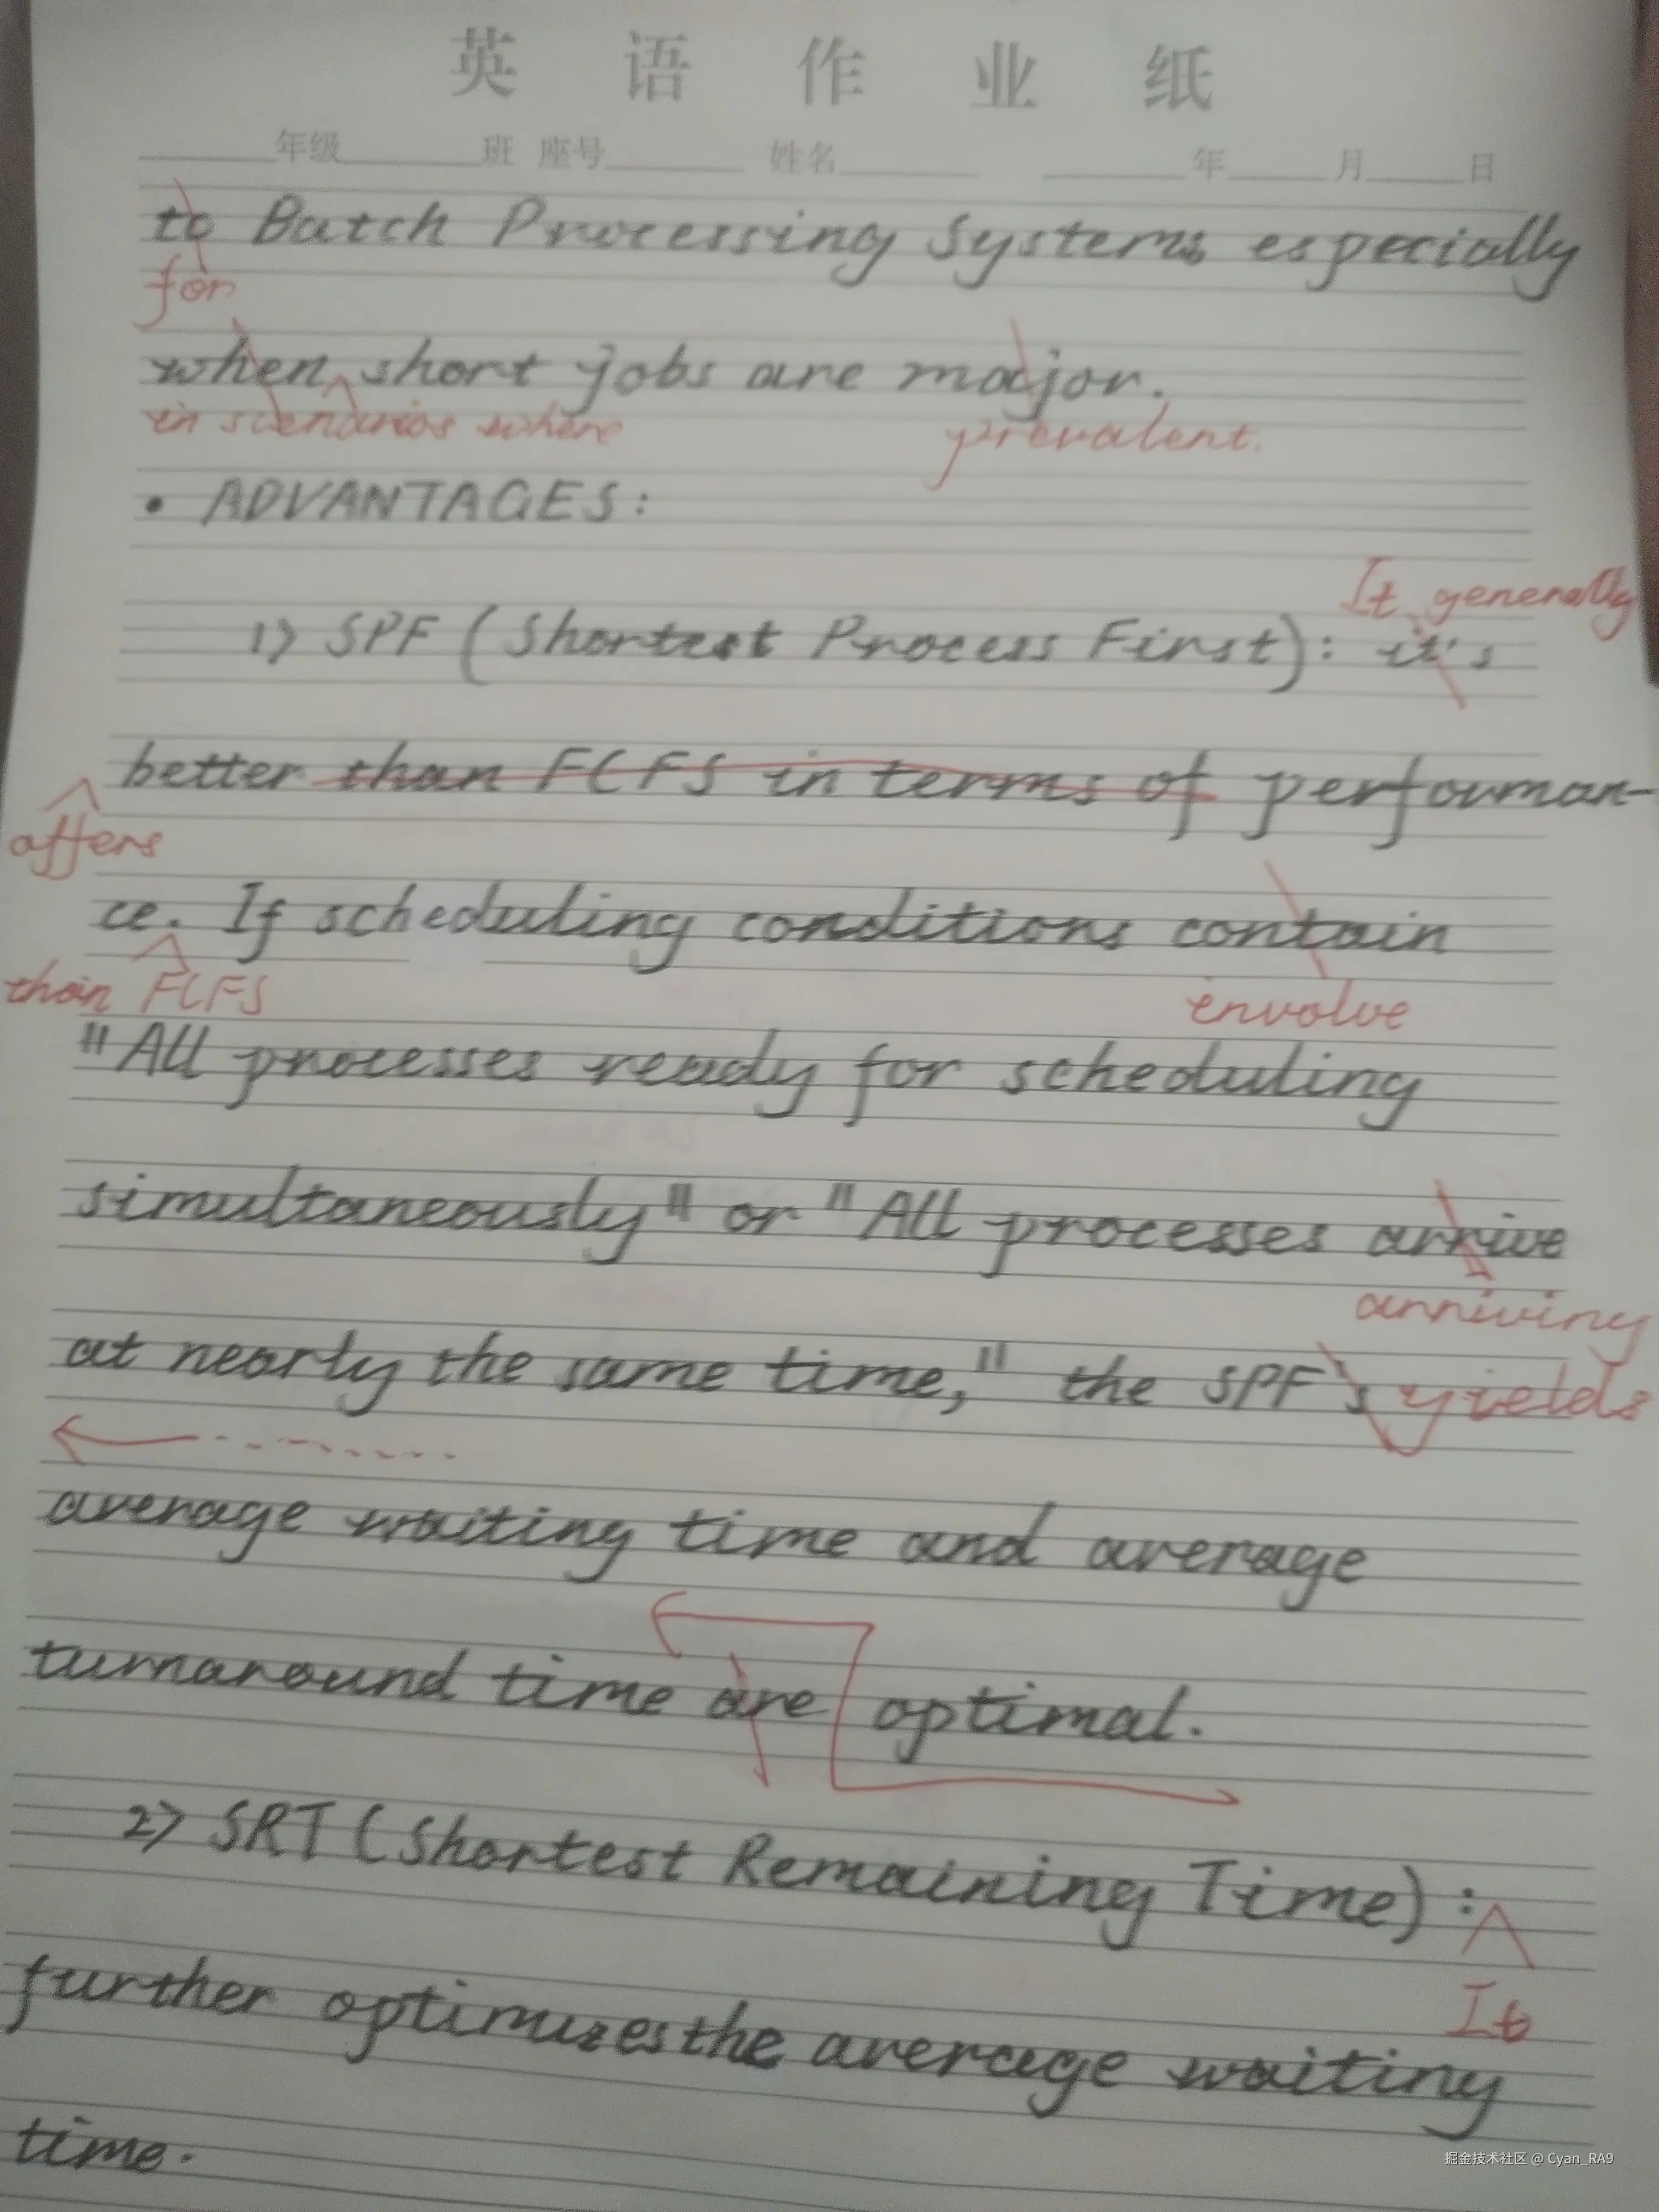 英语作业纸
年级 班 座号 姓名 年 月 日
to Batch Processing Systems especially
for
when short jobs are major.
in scenarios where prevalent.
• ADVANTAGES:
It generally
1) SPF (Shortest Process First): it's
better than FCFS in terms of performan-
offers
ce. If scheduling conditions contain
than FCFS envolve
"All processes ready for scheduling
simultaneously" or "All processes arrive
arriving
at nearly the same time," the SPF's yields
average waiting time and average
turnaround time are optimal.
2) SRT (Shortest Remaining Time):
It
further optimizes the average waiting
time.
掘金技术社区 @ Cyan_RA9